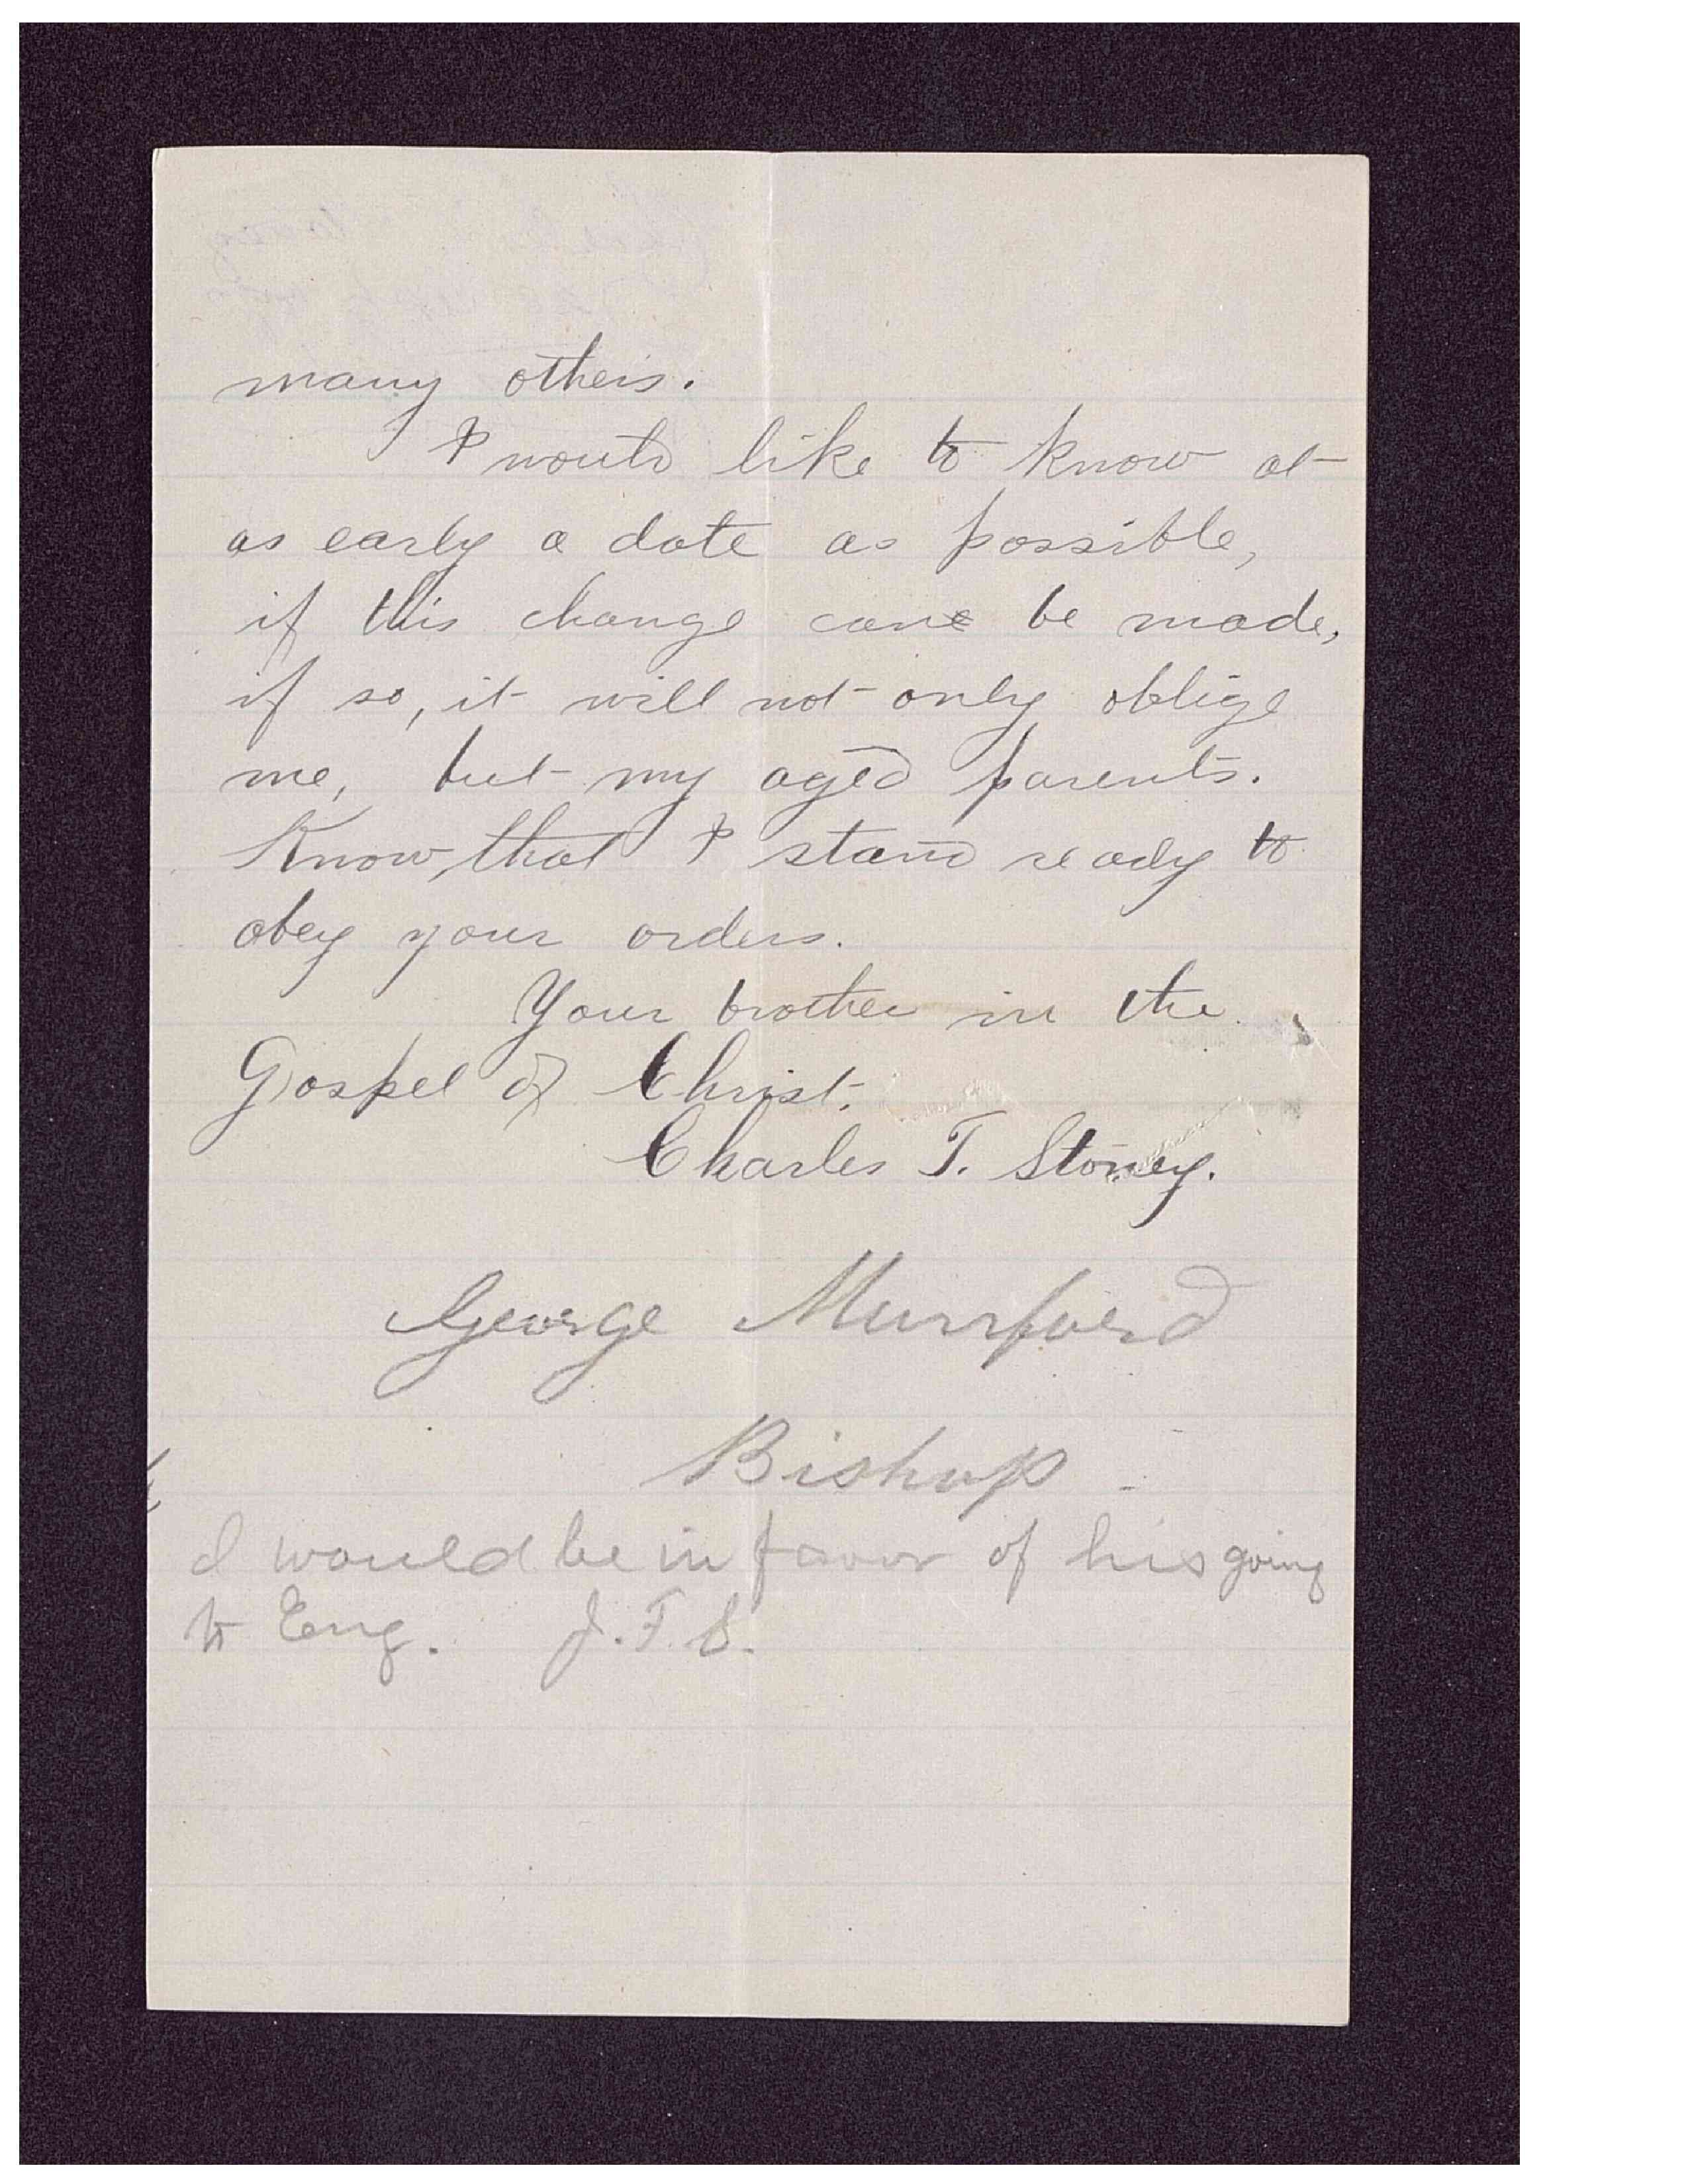 many others.
I would like to know at
as early a date as possible,
if this change cane be made,
if so, it will not only oblige
me, but my aged parents.
Know that I stand ready to
obey your orders.
Your brother in the
Gospel of Christ.
Charles T. Stoney.
George Munford
Bishop.
I would be in favor of his going
to Eng. J.F.S.